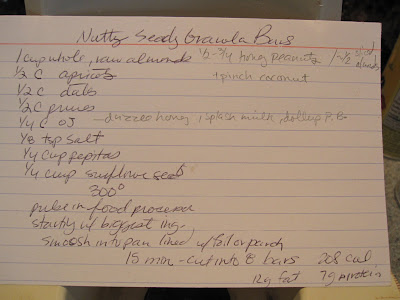 Nutty Seedy Granola Bars
1 cup whole, raw almonds 1/2 - 3/4 honey peanuts 1 - 1/2 almonds
1/2 C apricots + pinch coconut
1/2 C dates
1/2 C prunes
1/4 C OJ - drizzle honey, splash milk, dollup P.B.
1/8 tsp salt
1/4 cup pepitas
1/4 cup sunflower seeds
300°
pulse in food processor
starting w/ biggest ing.
smoosh into pan lined w/ foil or parch
15 min - cut into 8 bars 208 cal
12g fat 7g protein